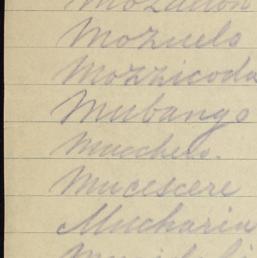 Mozuelo
Mozzicoda
Mubango
Mucchero.
Mucescere
Mucharia